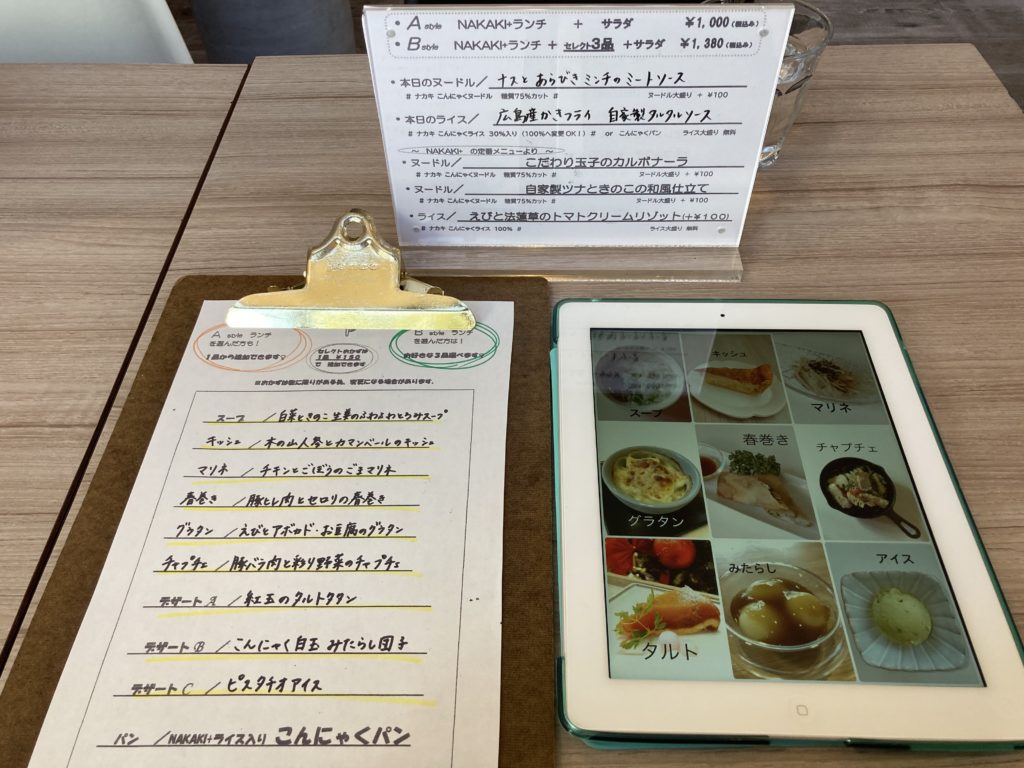 ・A style NAKAKI+ランチ + サラダ ￥1,000(税込み)
・B style NAKAKI+ランチ + セレクト3品 +サラダ ￥1,380(税込み)
・本日のヌードル／ ナスと あらびきミンチのミートソース
# ナカキ こんにゃくヌードル 糖質75%カット # ヌードル大盛り + ¥100
・本日のライス／ 広島産かきフライ 自家製タルタルソース
# ナカキ こんにゃくライス 30%入り (100%へ変更OK！) # or こんにゃくパン ライス大盛り 無料
～ NAKAKI+ の定番メニューより ～
・ヌードル／ こだわり玉子のカルボナーラ
# ナカキ こんにゃくヌードル 糖質75%カット # ヌードル大盛り + ¥100
・ヌードル／ 自家製ツナときのこの和風仕立て
# ナカキ こんにゃくヌードル 糖質75%カット # ヌードル大盛り + ¥100
・ライス／ えびと法蓮草のトマトクリームリゾット(+¥100)
# ナカキ こんにゃくライス 100% # ライス大盛り 無料
A style ランチ
を選んだ方も！
1品から追加できます♡
セレクトおかずは
1品 ¥150
で 追加できます
B style ランチ
を選んだ方は！
お好きな3品選べます♡
※おかずは数に限りがある為、変更になる場合があります。
スープ ／白菜ときのこ生姜のふわふわとろみスープ
キッシュ ／木の山人参とカマンベールのキッシュ
マリネ ／チキンとごぼうのごまマリネ
春巻き ／豚ヒレ肉とセロリの春巻き
グラタン ／えびとアボカド・お豆腐のグラタン
チャプチェ ／豚バラ肉と彩り野菜のチャプチェ
デザート A ／紅玉のタルトタタン
デザート B ／こんにゃく白玉 みたらし団子
デザート C ／ピスタチオアイス
パン ／NAKAKI+ライス入り こんにゃくパン
スープ
キッシュ
マリネ
グラタン
春巻き
チャプチェ
タルト
みたらし
アイス